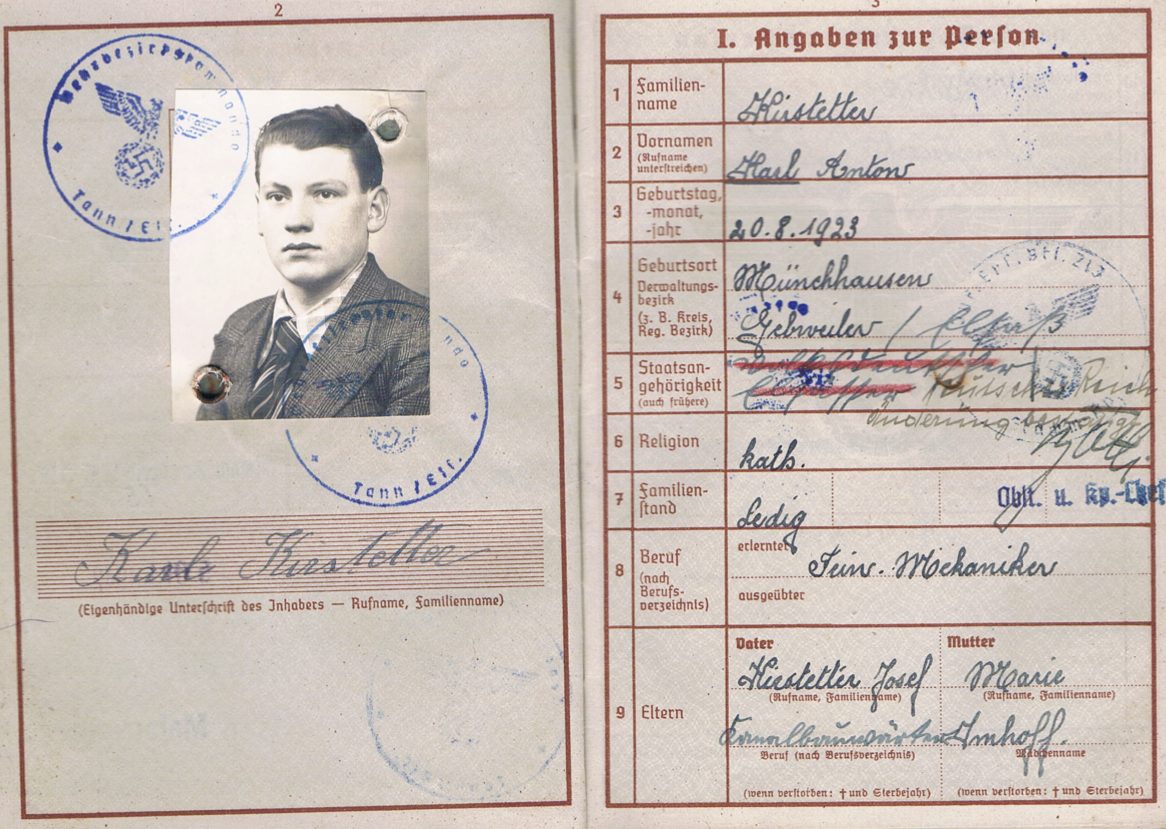 2
Wehrbezirkskommando
Tann / Els.
Tann / Els.
Karl Kirstetter
(Eigenhändige Unterschrift des Inhabers — Rufname, Familienname)
3
I. Angaben zur Person
1 Familien-
name
Kirstetter
2 Vornamen
(Rufname
unterstreichen)
Karl Anton
3 Geburtstag,
-monat,
-jahr
20.8.1923
4 Geburtsort
Verwaltungs-
bezirk
(z. B. Kreis,
Reg. Bezirk)
Münchhausen
Gebweiler / Elsaß
5 Staatsan-
gehörigkeit
(auch frühere)
Volksdeutscher
Elsässer Deutsches Reich
Änderung bestätigt
6 Religion
kath.
7 Familien-
stand
Ledig
Oblt. u. Kp.-Chef
8 Beruf
(nach
Berufs-
verzeichnis)
erlernter
Fein-Mekaniker
ausgeübter
9 Eltern
Vater
Kirstetter Josef
(Rufname, Familienname)
Kanalbauwärter
Beruf (nach Berufsverzeichnis)
(wenn verstorben: † und Sterbejahr)
Mutter
Marie
(Rufname, Familienname)
Imhoff.
Mädchenname
(wenn verstorben: † und Sterbejahr)